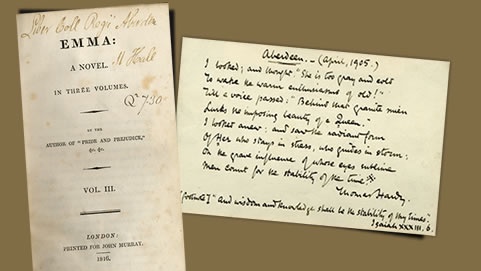 Liber Coll. Regii Aberdon
EMMA:
A NOVEL.
IN THREE VOLUMES.
BY THE
AUTHOR OF "PRIDE AND PREJUDICE,"
&c. &c.
VOL. III.
LONDON:
PRINTED FOR JOHN MURRAY.
1816.
Aberdeen. — (April, 1905.)
I looked; and thought "She is too gray and cold
To wake the warm enthusiasms of old!"
Till a voice passed: "Behind that granite mien
Lurks the imposing beauty of a Queen."
I looked anew; and saw the radiant form
Of Her who stays in stress, who guides in storm:
On the grave influence of whose eyes sublime
Men count for the stability of the time.
Thomas Hardy.
"And wisdom and knowledge shall be the stability of thy times."
Isaiah XXXIII. 6.